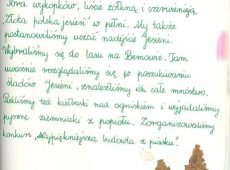 Pora wykopków, liście żółkną i czerwienieją
"Złota polska jesień" w pełni. My także
postanowiliśmy uczcić nadejście Jesieni.
Wybraliśmy się do lasu na Bemowie. Tam
uważnie rozglądaliśmy się w poszukiwaniu
śladów Jesieni, znaleźliśmy ich całe mnóstwo.
Piekliśmy też kiełbaski nad ogniskiem i wyjadaliśmy
pyszne ziemniaki z popiołu. Zorganizowaliśmy
konkurs "Najpiękniejsza budowla z piasku".